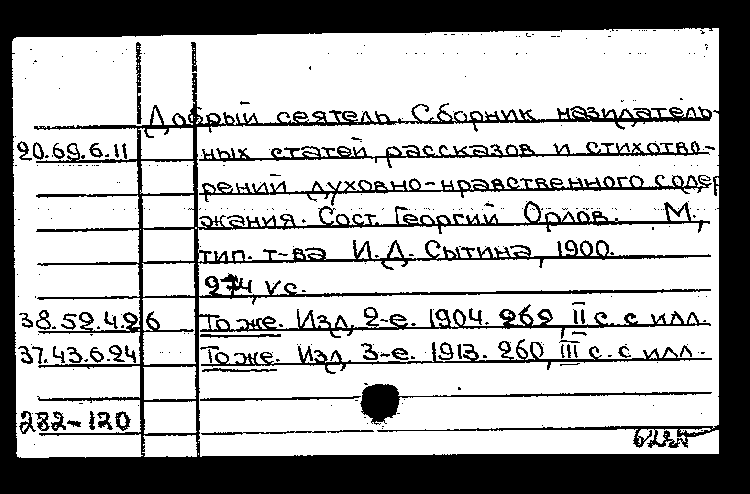 Добрый сеятель. Сборник назидатель-
20.69.6.11 ных статей, рассказов и стихотво-
рений духовно-нравственного содер
жания. Сост. Георгий Орлов. М.,
тип. т-ва И.Д. Сытина, 1900.
274, V с.
38.52.4.26 То же. Изд. 2-е. 1904. 262, II с. с илл.
37.43.6.24 То же. Изд. 3-е. 1913. 260, III с. с илл.
282-120